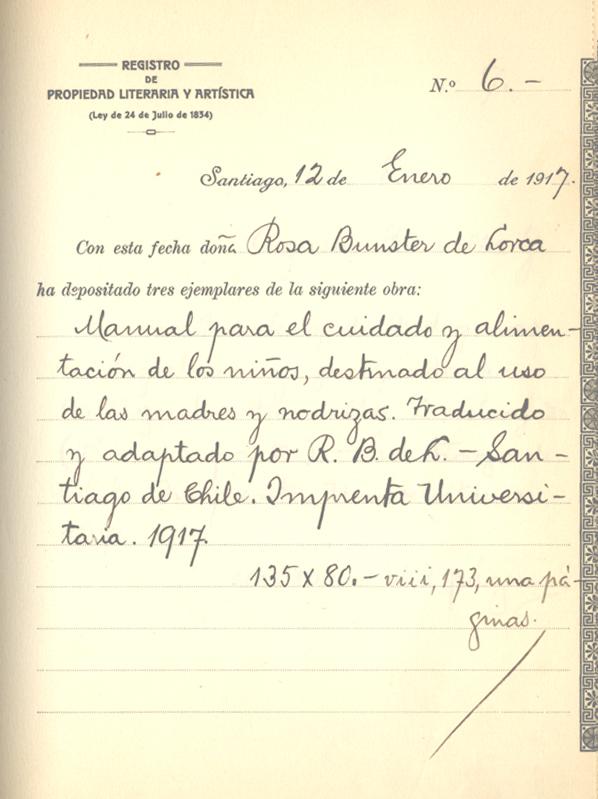 REGISTRO
DE
PROPIEDAD LITERARIA Y ARTÍSTICA
(Ley de 24 de Julio de 1834)
N.º 6.-
Santiago, 12 de Enero de 1917.
Con esta fecha doña Rosa Bunster de Lorca
ha depositado tres ejemplares de la siguiente obra:
Manual para el cuidado y alimen-
tación de los niños, destinado al uso
de las madres y nodrizas. Traducido
y adaptado por R. B. de L. - San-
tiago de Chile. Imprenta Universi-
taria. 1917.
135 x 80.- viii, 173, una pá-
ginas.